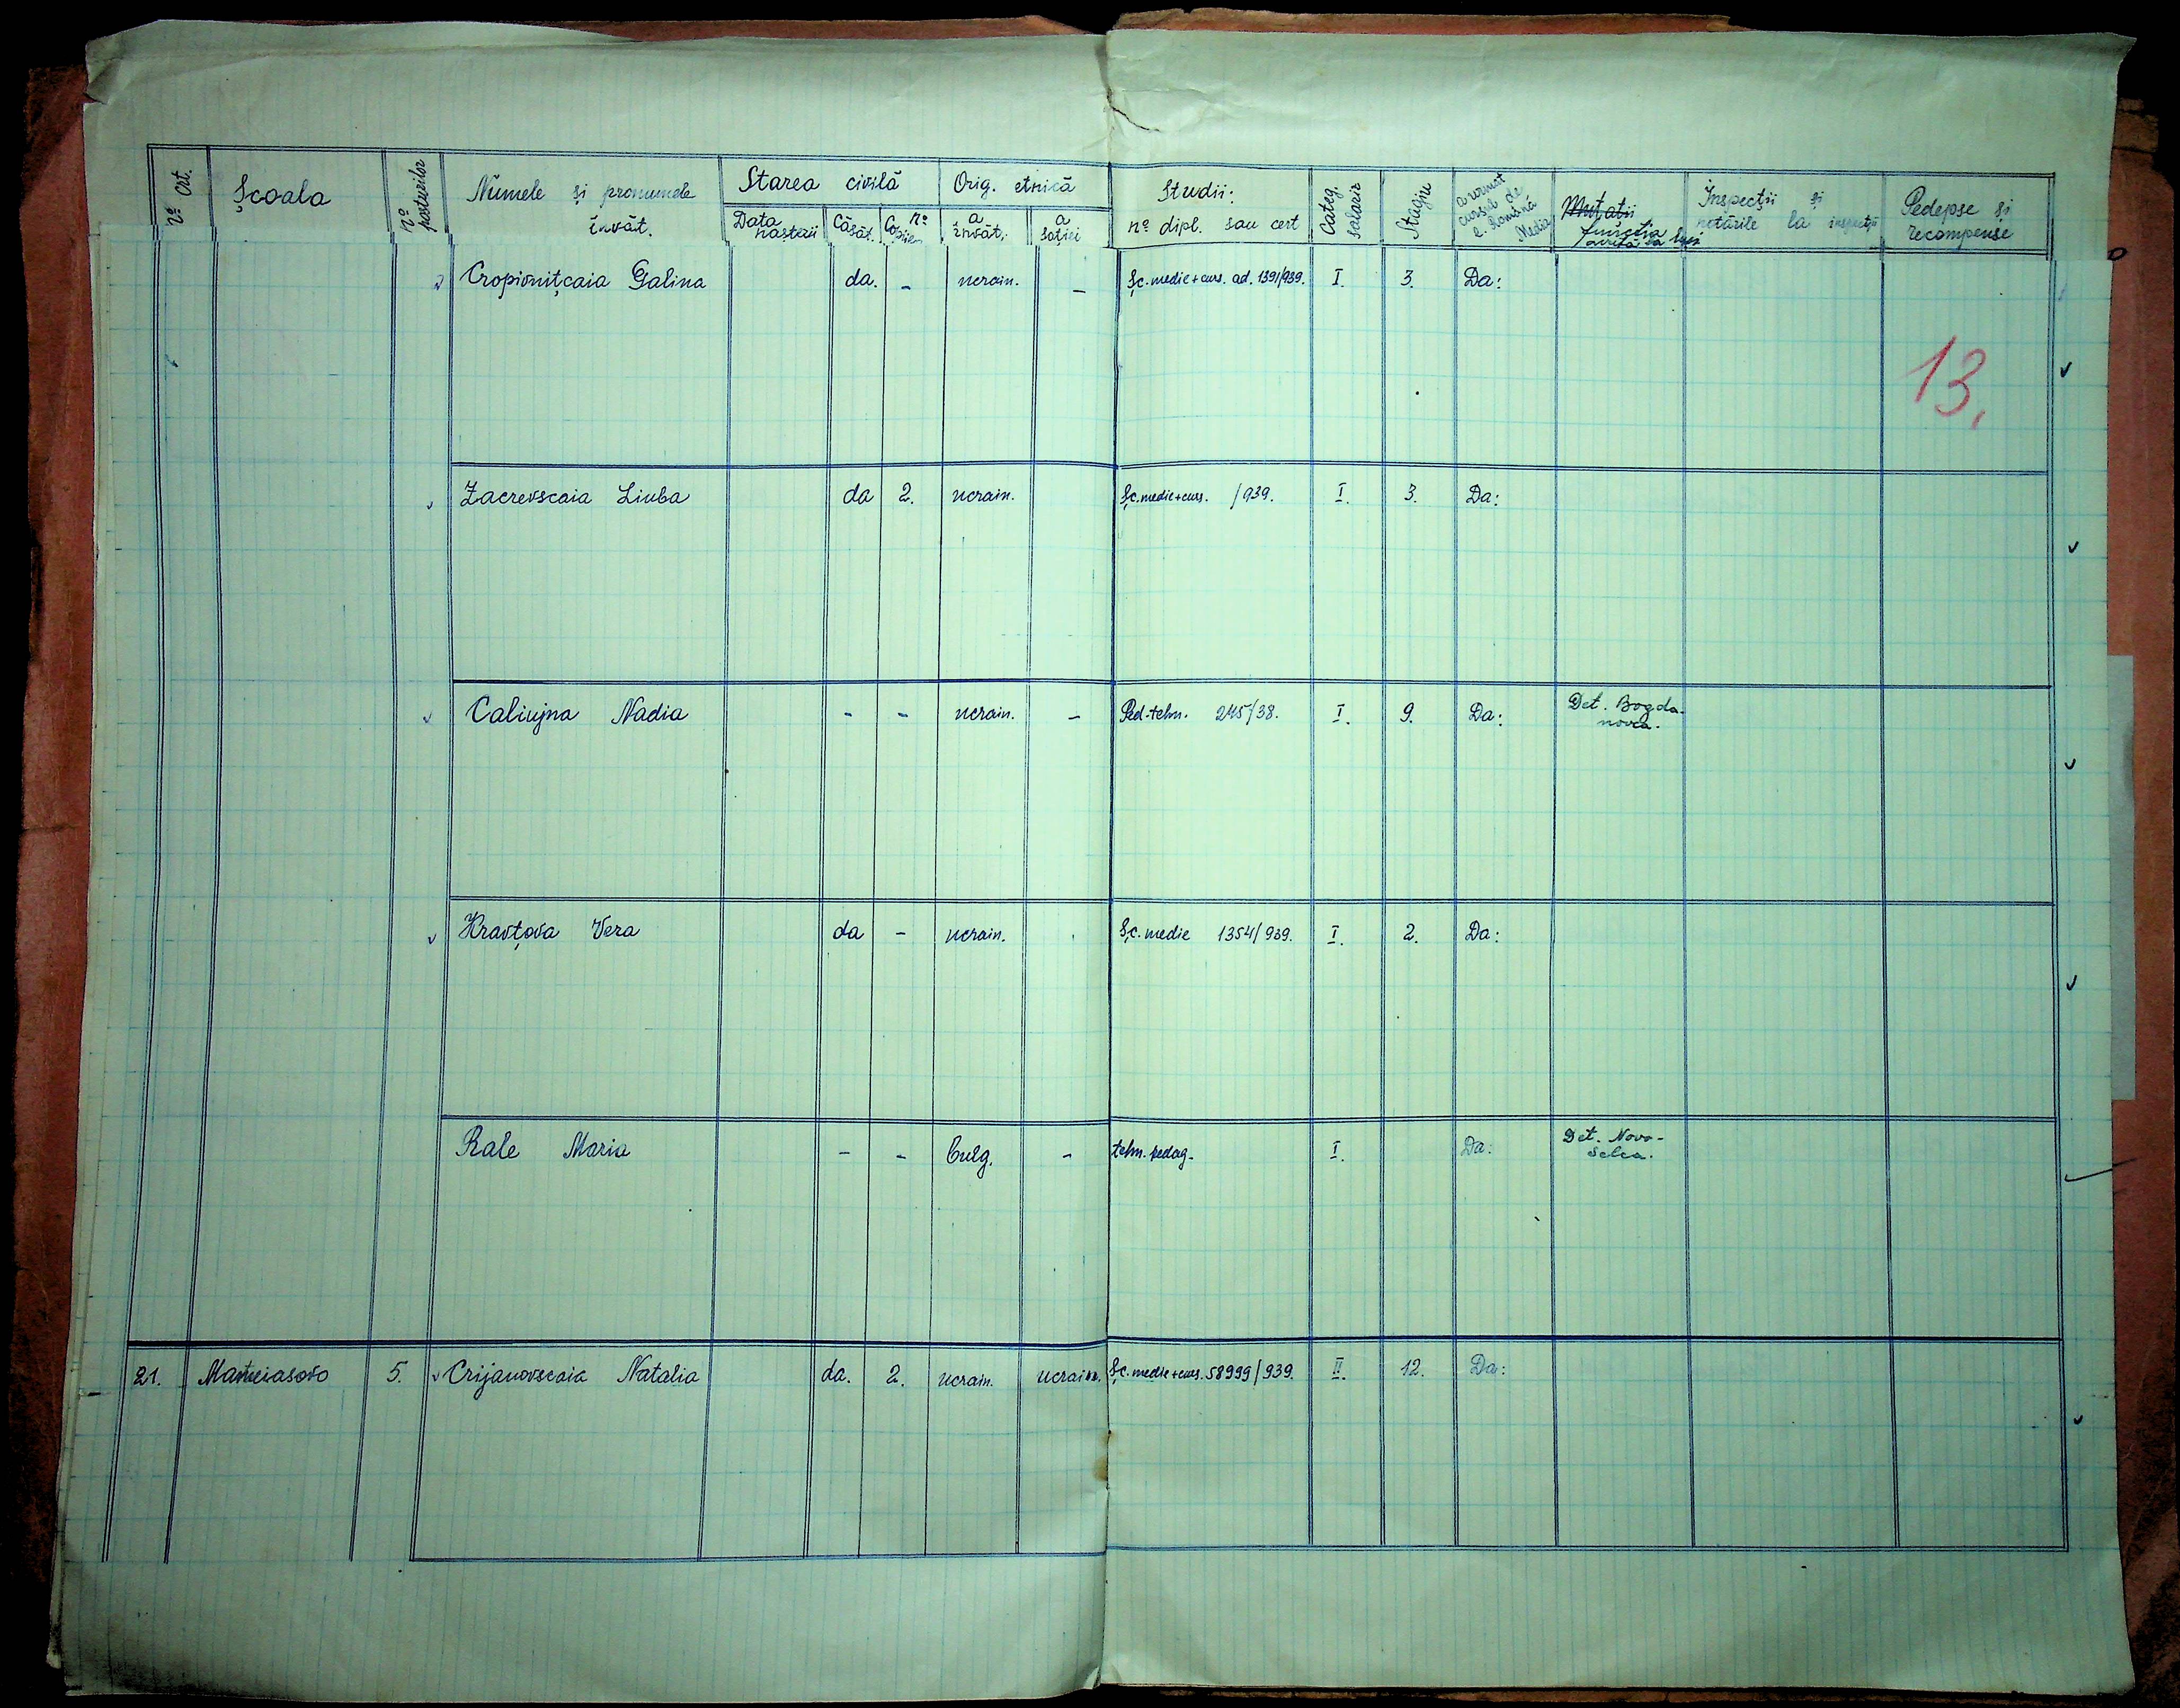 Nº Crt. Școala Nº posturilor Numele și pronumele învăt. Starea civilă Orig. etnică Studii: nº dipl. sau cert Categ. salariz Stagiu a urmat cursul de l. Română Media Mutații funcția Inspecții și notările la inspecții Pedepse și recompense
Data nașterii Căsăt. nº Copiilor a învăt. a soției
Cropivnițcaia Galina da. - ucrain. - Șc. medie + curs. ad. 1391/939. I. 3. Da:
13.
Zacrevscaia Liuba da 2. ucrain. Șc. medie + curs. /939. I. 3. Da:
Caliujna Nadia - - ucrain. - Ped-tehn. 245/38. I. 9. Da: Det. Bogda-
novca.
Kravțova Vera da - ucrain. Șc. medie 1354/939. I. 2. Da:
Rale Maria - - bulg. - tehn. pedag- I. Da: Det. Novo-
selca.
21. 5. Crijanovscaia Natalia da. 2. ucrain. ucrain. Șc. medie + curs. 58999/939. II. 12. Da: